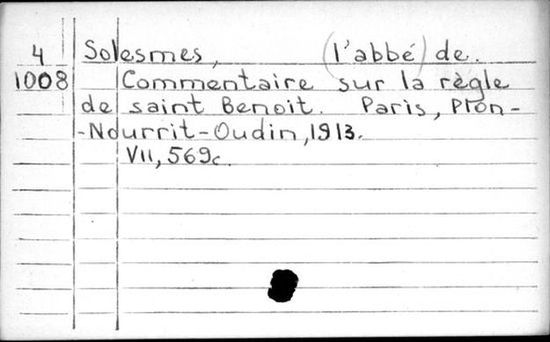 4 Solesmes, (l'abbé) de.
1008 Commentaire sur la règle
de saint Benoit. Paris, Plon-
-Nourrit-Oudin, 1913.
VII, 569c.